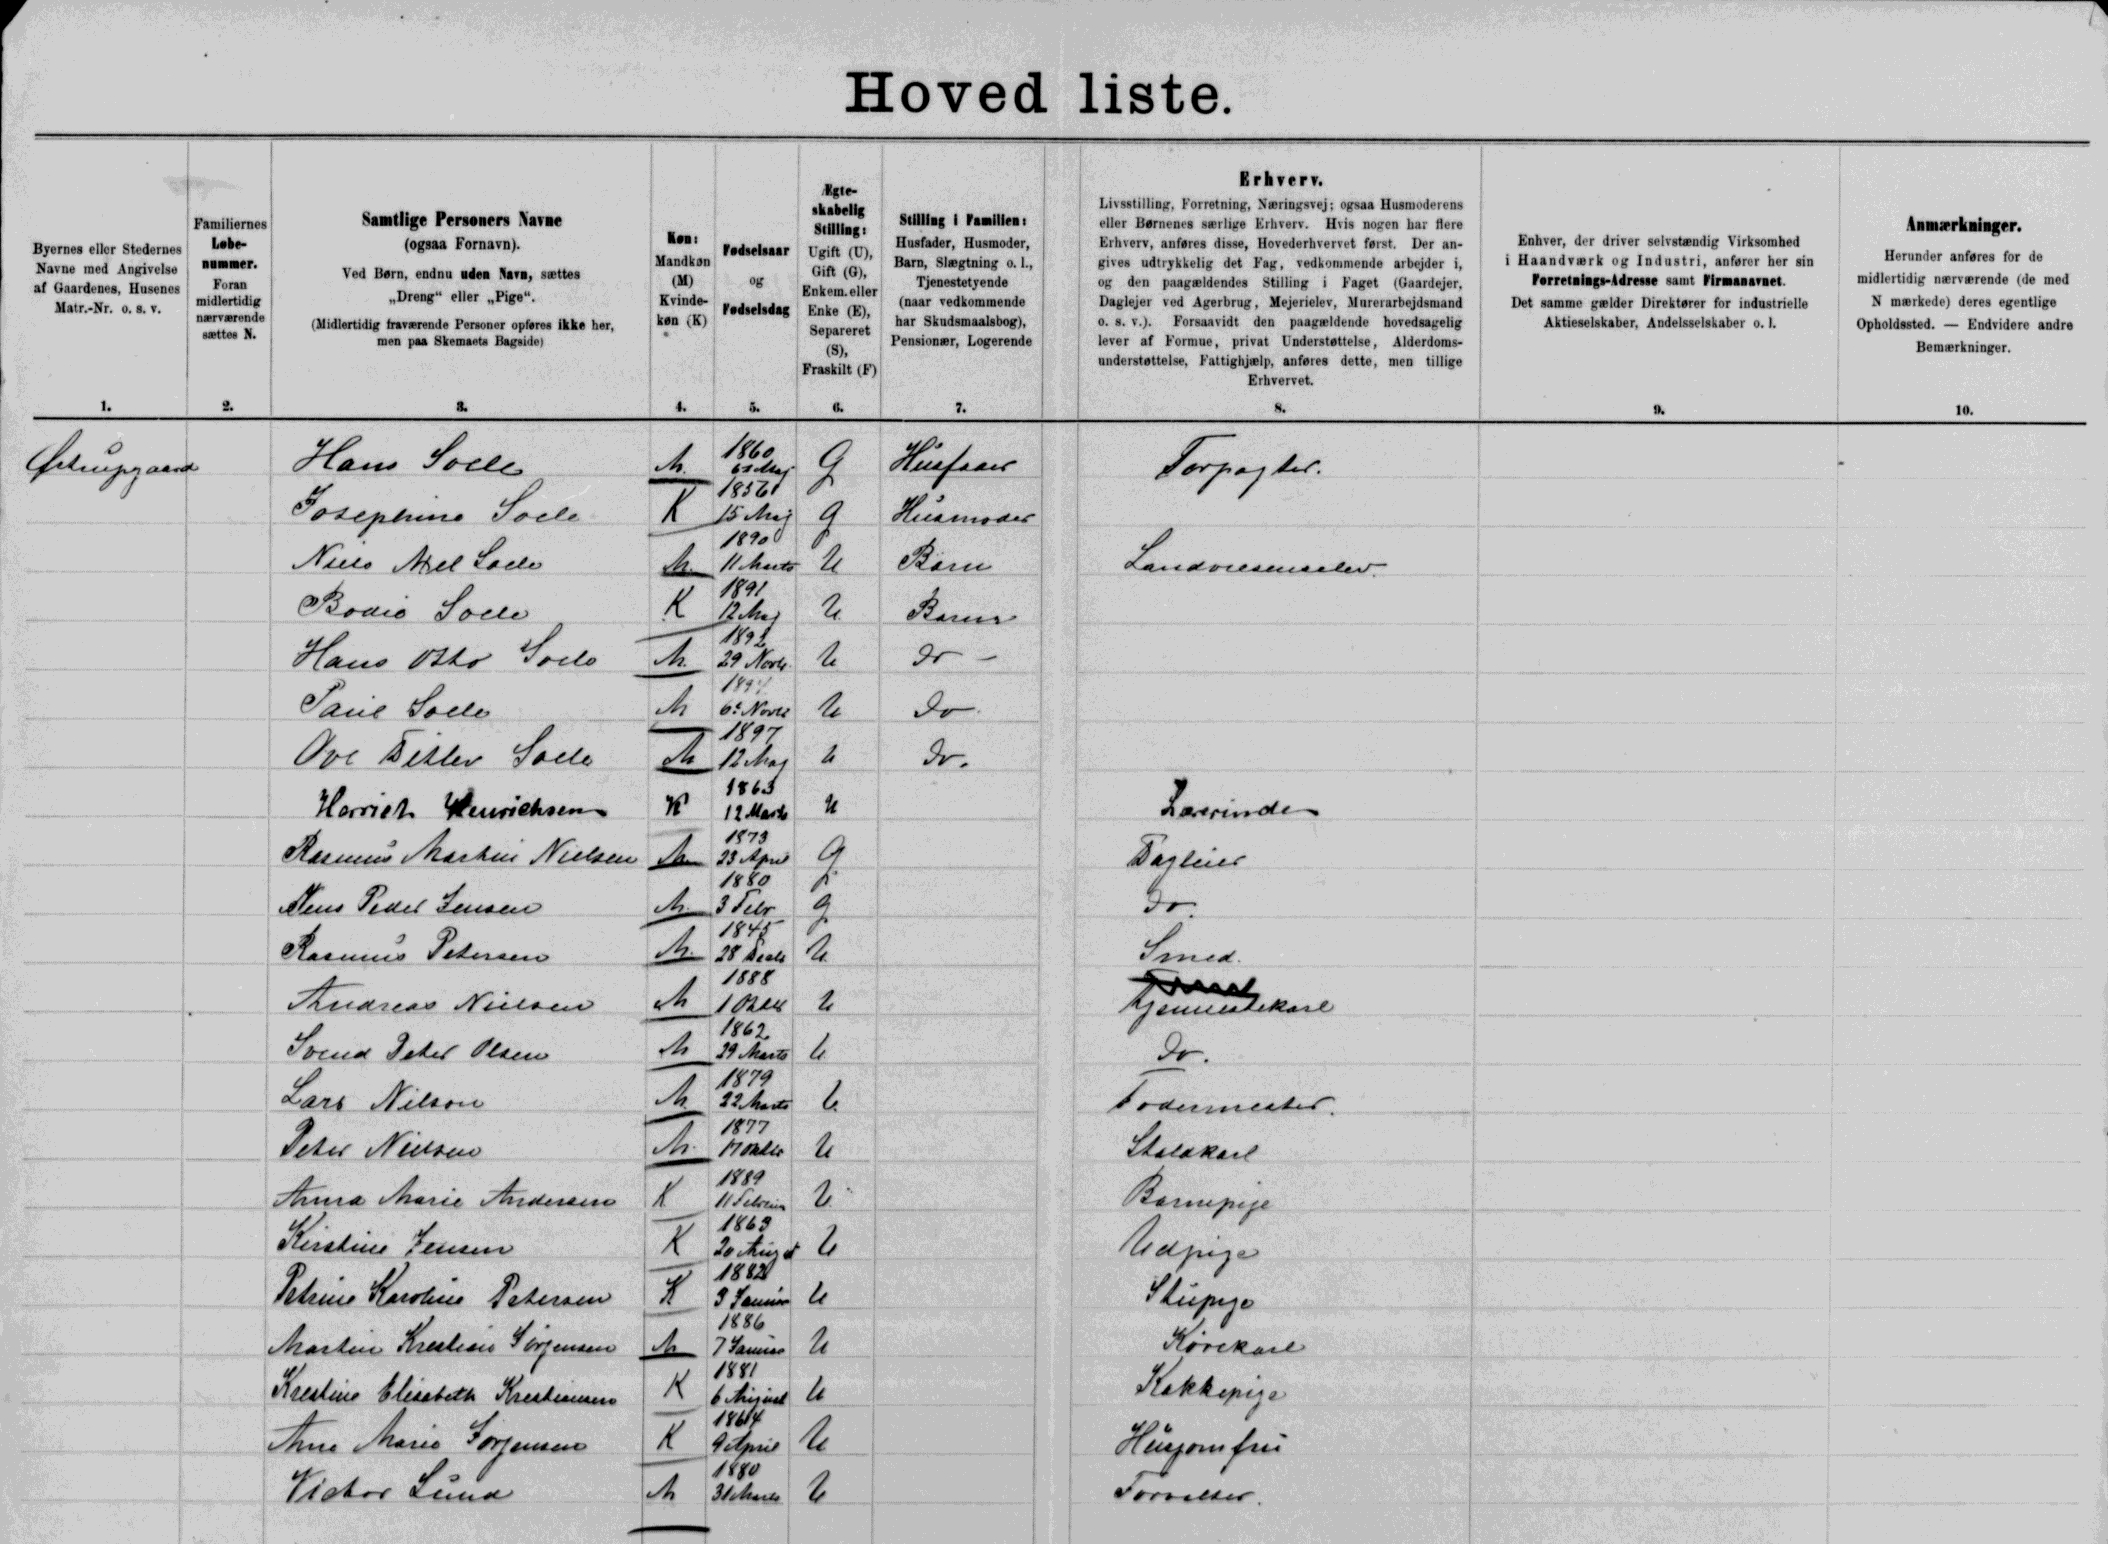 Hoved liste.
Byernes eller Stedernes
Navne med Angivelse
af Gaardenes, Husenes
Matr.-Nr. o. s. v.
1.
Familiernes
Løbe-
nummer.
Foran
midlertidig
nærværende
sættes N.
2.
Samtlige Personers Navne
(ogsaa Fornavn).
Ved Børn, endnu uden Navn, sættes
„Dreng“ eller „Pige“.
(Midlertidig fraværende Personer opføres ikke her,
men paa Skemaets Bagside)
3.
Køn:
Mandkøn
(M)
Kvinde-
køn (K)
4.
Fødselsaar
og
Fødselsdag
5.
Ægte-
skabelig
Stilling:
Ugift (U),
Gift (G),
Enkem. eller
Enke (E),
Separeret
(S),
Fraskilt (F)
6.
Stilling i Familien:
Husfader, Husmoder,
Barn, Slægtning o. l.,
Tjenestetyende
(naar vedkommende
har Skudsmaalsbog),
Pensionær, Logerende
7.
Erhverv.
Livsstilling, Forretning, Næringsvej; ogsaa Husmoderens
eller Børnenes særlige Erhverv. Hvis nogen har flere
Erhverv, anføres disse, Hovederhvervet først. Der an-
gives udtrykkelig det Fag, vedkommende arbejder i,
og den paagældendes Stilling i Faget (Gaardejer,
Daglejer ved Agerbrug, Mejerielev, Murerarbejdsmand
o. s. v.). Forsaavidt den paagældende hovedsagelig
lever af Formue, privat Understøttelse, Alderdoms-
understøttelse, Fattighjælp, anføres dette, men tillige
Erhvervet.
8.
Enhver, der driver selvstændig Virksomhed
i Haandværk og Industri, anfører her sin
Forretnings-Adresse samt Firmanavnet.
Det samme gælder Direktører for industrielle
Aktieselskaber, Andelsselskaber o. l.
9.
Anmærkninger.
Herunder anføres for de
midlertidig nærværende (de med
N mærkede) deres egentlige
Opholdssted. — Endvidere andre
Bemærkninger.
10.
Østrupgaard Hans Soele M. 1860 Maj G Husfaer Forpagter.
Josephine Soele K 1856 15 Maj G Husmoder
Niels Axel Soele M. 1890 11 Marts U Barn Landvæsenselev.
Bodie Soele K 1891 12 Maj U Barn
Hans Otto Soele M. 1892 29 Novb. U do -
Paul Soele M 1894 6 Novb U do
Ove Ditlev Soele M 1897 12 Maj U do.
Harriet Henrichsen K 1863 12 Marts U Lærerinde
Rasmus Martin Nielsen M 1873 23 April G Dagleier
Jens Peder Jensen M. 1880 3 Febr G do.
Rasmus Petersen M. 1845 28 Decb U Smed.
Andreas Nielsen M 1888 1 Oktbr U Tjenestekarl
Svend Peter Olsen M 1862 29 Marts U do.
Lars Nilson M 1879 22 Marts U Fodermester.
Peter Nielsen M. 1877 17 Oktbr U Staldkarl
Anna Marie Andersen K 1889 11 U Barnepige
Kirstine Jensen K 1863 20 August U Udpige
Petrine Karoline Petersen K 1882 3 Januar U Stuepige
Martin Krestian Jørgensen M 1886 7 Januar U Kørekarl
Krestine Elisabeth Krestiansen K 1881 6 August U Kokkepige
Ane Marie Jørgensen K 1864 9 April U Husjomfru
Victor Lund M 1880 31 Marts U Forvalter.